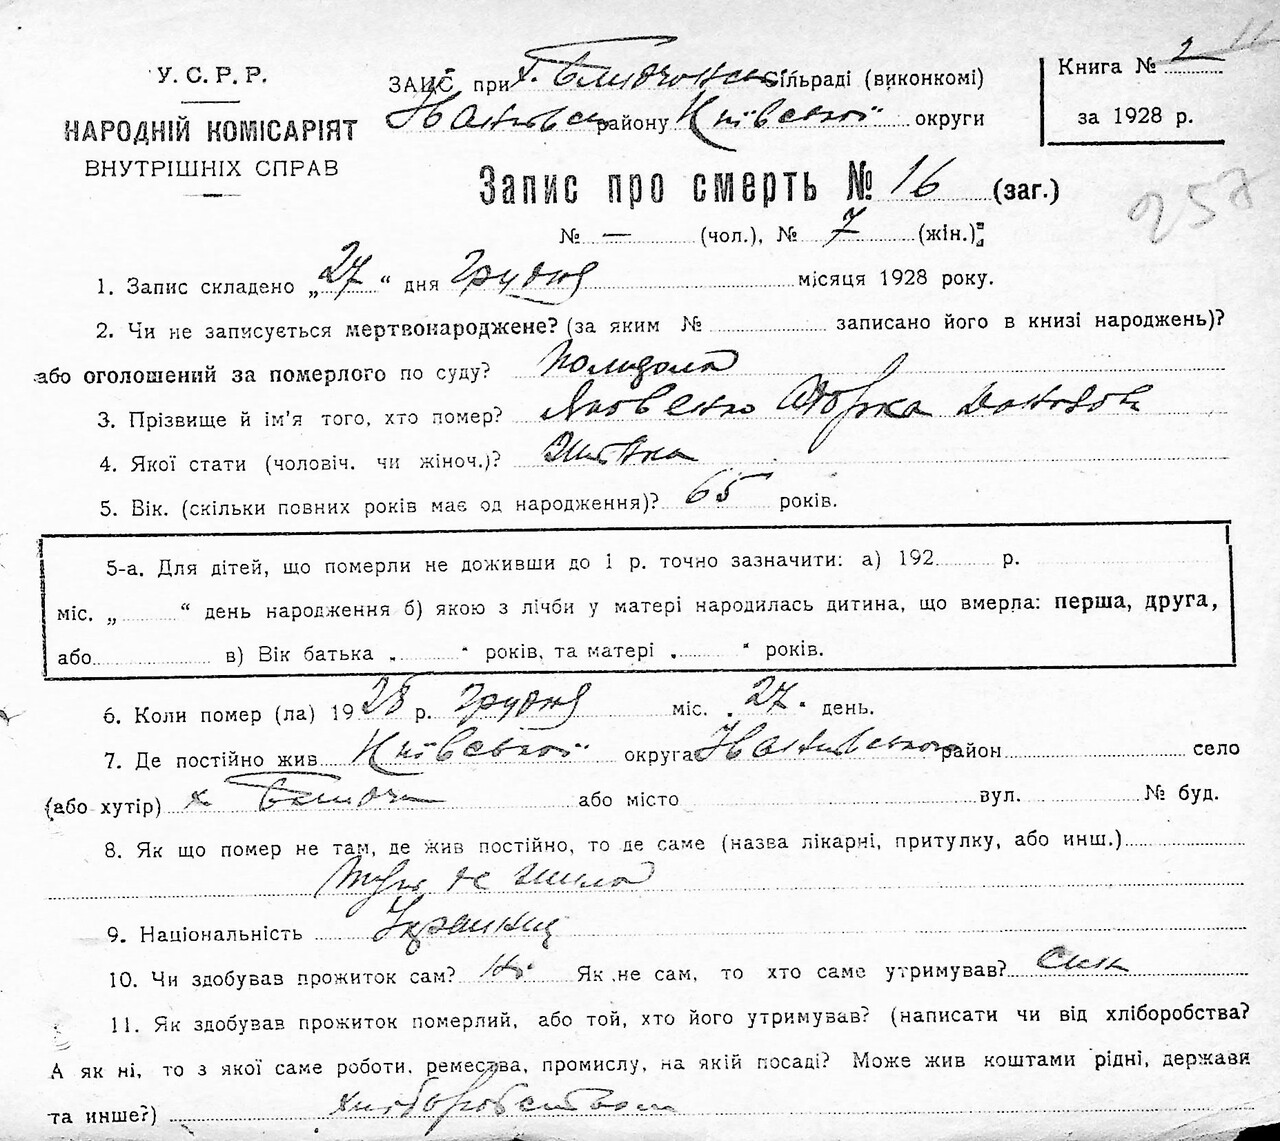 У. С. Р. Р.
НАРОДНІЙ КОМІСАРІЯТ
ВНУТРІШНІХ СПРАВ
ЗАГС при х. сільраді (виконкомі)
району Київської округи
Книга № 2
за 1928 р.
257
Запис про смерть № 16 (заг.)
№ — (чол.), № 7 (жін.)
1. Запис складено „27“ дня грудня місяця 1928 року.
2. Чи не записується мертвонароджене? (за яким № записано його в книзі народжень)?
або оголошений за померлого по суду? 
3. Прізвище й ім'я того, хто помер? Яковенко
4. Якої статі (чоловіч. чи жіноч.)? Жінка
5. Вік. (скільки повних років має од народження)? 65 років.
5-а. Для дітей, що померли не доживши до 1 р. точно зазначити: а) 192 р.
міс. „ “ день народження б) якою з лічби у матері народилась дитина, що вмерла: перша, друга,
або в) Вік батька „ “ років, та матері „ “ років.
6. Коли помер (ла) 1928 р. грудня міс. 27 день.
7. Де постійно жив Київської округа Іванківського район село
(або хутір) х. або місто вул. № буд.
8. Як що помер не там, де жив постійно, то де саме (назва лікарні, притулку, або инш.)
де жила
9. Національність Українка
10. Чи здобував прожиток сам? Ні Як не сам, то хто саме утримував? син
11. Як здобував прожиток померлий, або той, хто його утримував? (написати чи від хліборобства?
А як ні, то з якої саме роботи, ремества, промислу, на якій посаді? Може жив коштами рідні, держави
та инше?) хліборобством